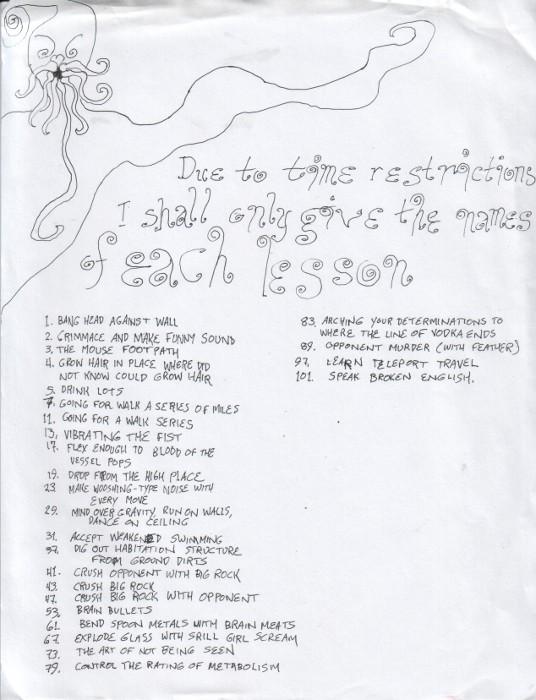 Due to time restrictions
I shall only give the names
of each lesson
1. BANG HEAD AGAINST WALL
2. GRIMMACE AND MAKE FUNNY SOUND
3. THE MOUSE FOOTPATH
4. GROW HAIR IN PLACE WHERE DID
NOT KNOW COULD GROW HAIR
5. DRINK LOTS
7. GOING FOR WALK A SERIES OF MILES
11. GOING FOR A WALK SERIES
13. VIBRATING THE FIST
17. FLEX ENOUGH TO BLOOD OF THE
VESSEL POPS
19. DROP FROM THE HIGH PLACE
23. MAKE WOOSHING-TYPE NOISE WITH
EVERY MOVE
29. MIND OVER GRAVITY, RUN ON WALLS,
DANCE ON CEILING
31. ACCEPT WEAKENED SWIMMING
37. DIG OUT HABITATION STRUCTURE
FROM GROUND DIRTS
41. CRUSH OPPONENT WITH BIG ROCK
43. CRUSH BIG ROCK
47. CRUSH BIG ROCK WITH OPPONENT
53. BRAIN BULLETS
61. BEND SPOON METALS WITH BRAIN MEATS
67. EXPLODE GLASS WITH SRILL GIRL SCREAM
73. THE ART OF NOT BEING SEEN
79. CONTROL THE RATING OF METABOLISM
83. ARCHING YOUR DETERMINATIONS TO
WHERE THE LINE OF VODKA ENDS
89. OPPONENT MURDER (WITH FEATHER)
97. LEARN TELEPORT TRAVEL
101. SPEAK BROKEN ENGLISH.